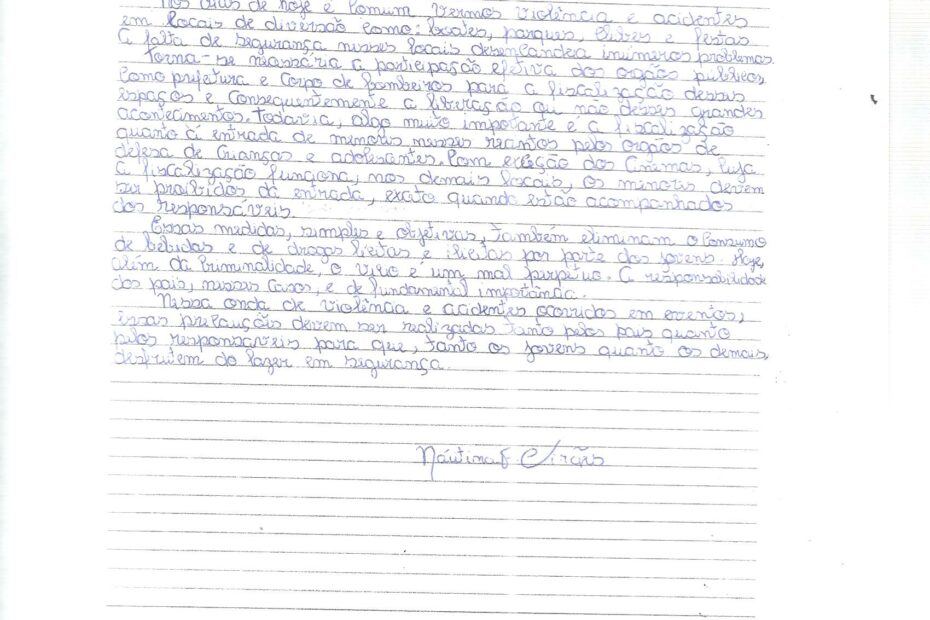 Nos dias de hoje é comum vermos violência e acidentes
em locais de diversão como: boates, parques, e festas
A falta de segurança nesses locais desencandea inúmeros problemas.
Torna-se necessária a participação efetiva dos orgãos públicos,
como prefeitura e Corpo de bombeiros para a fiscalização desses
espaços e consequentemente a liberação ou não desses grandes
acontecimentos. Todavia, algo muito importante é a fiscalização
quanto à entrada de menores nesses recantos pelos orgãos de
defesa de crianças e adolesantes. Com exleção dos Cinemas, cuja
a fiscalização funciona, nos demais locais, os menores devem
ser proibidos da entrada, exceto quando estão acompanhados
dos responsáveis.
Essas medidas, simples e objetivas, também eliminam o consumo
de bebidas e de drogas licitas e ilicitas por parte dos jovens. Hoje,
além da criminalidade, o vício é um mal perpétuo. A responsabilidade
dos pais, nesses casos, é de fundamental importância.
Nessa onda de violência e acidentes ocorridos em eventos,
essas precauções devem ser realizadas tanto pelos pais quanto
pelos responsáveis para que, tanto os jovens quanto os demais,
desfrutem do lazer em segurança.